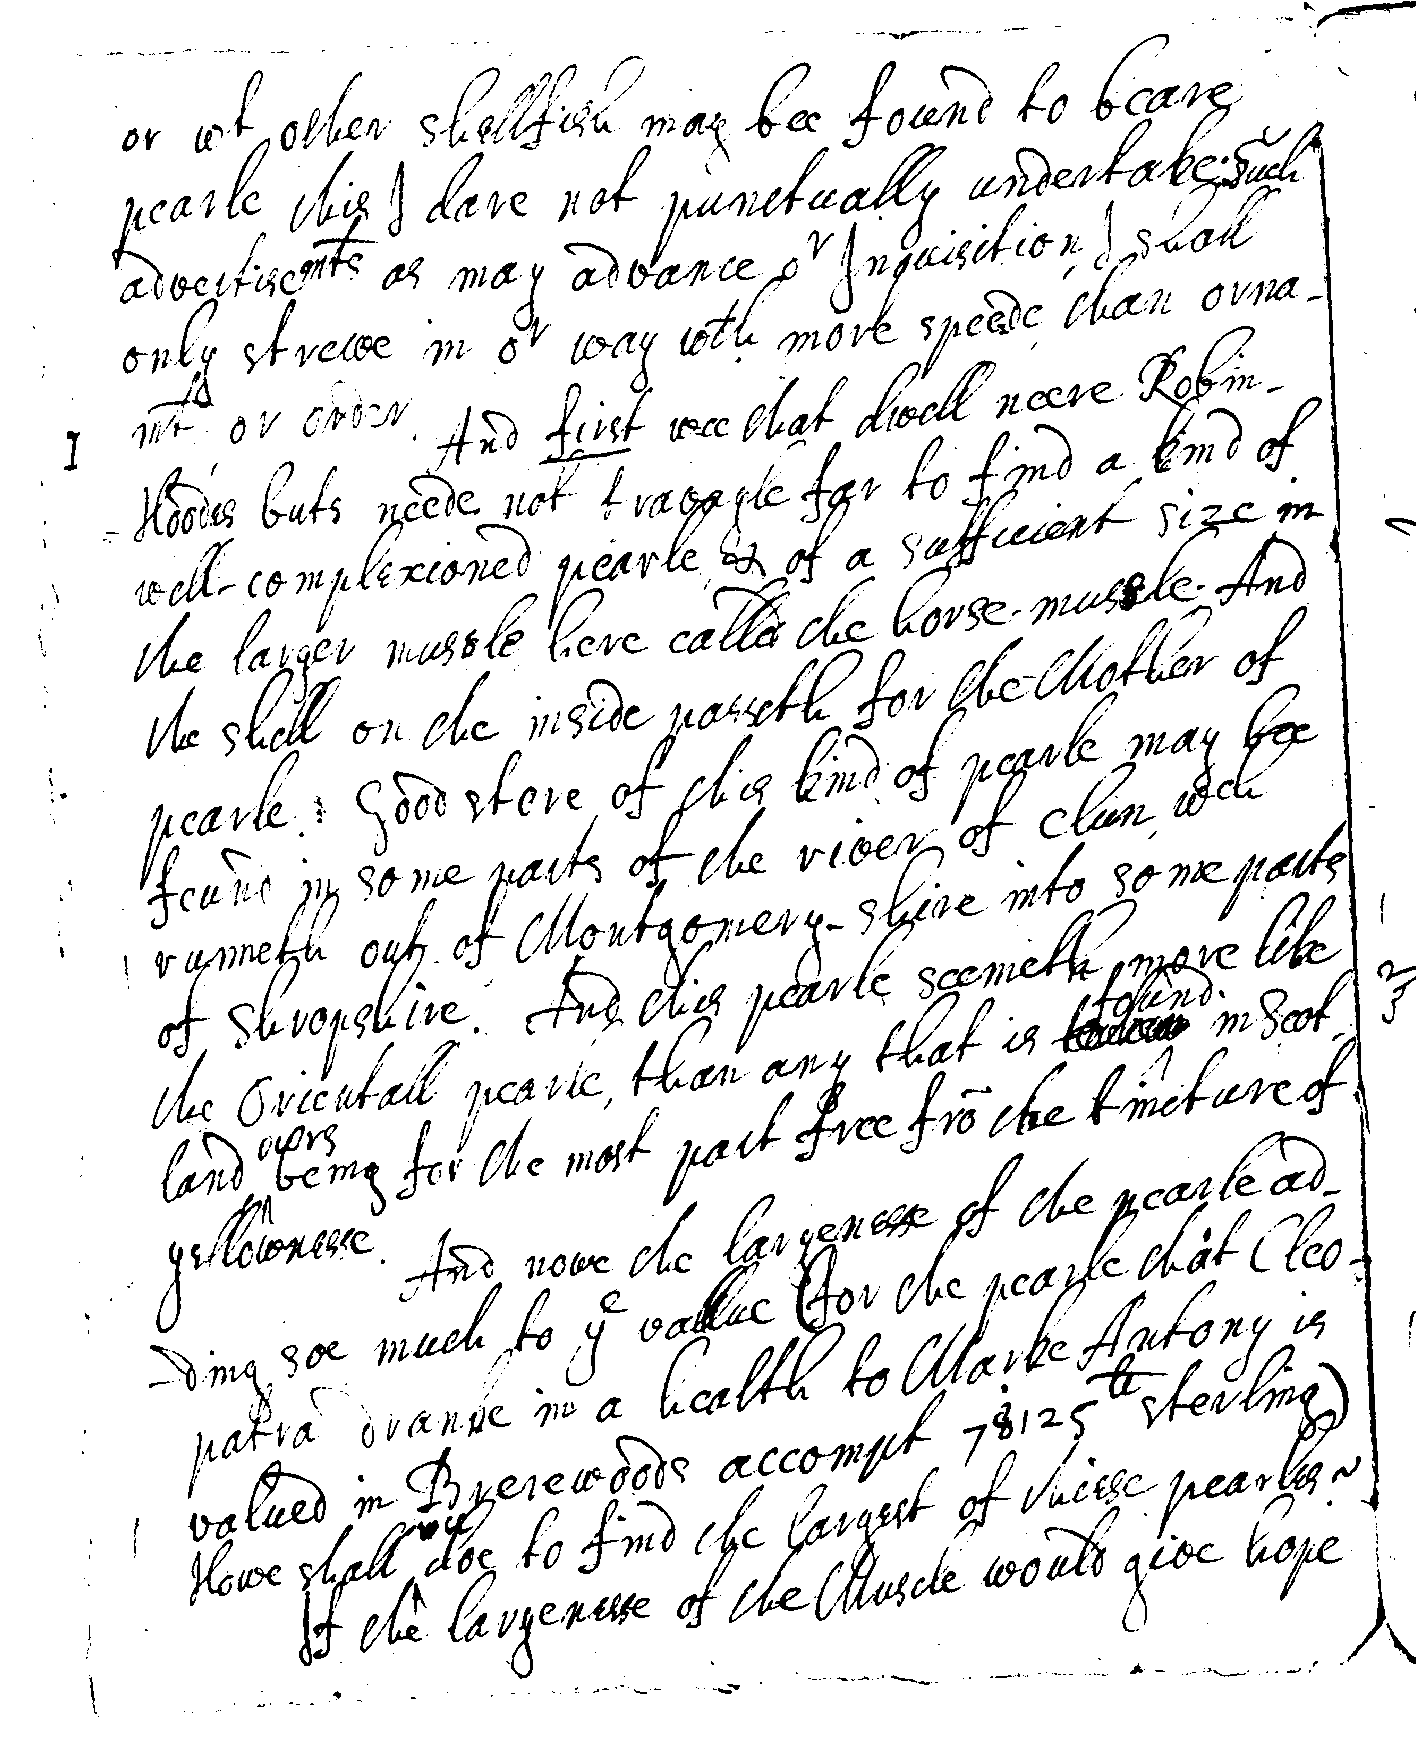 or wt other shellfish may bee found to beare
pearle this I dare not punctually undertake. Such
advertisemts as may advance or Inquisition, I shall
only strewe in or way wth more speede, than orna-
I mt or order. And first wee that dwell neere Robin-
-Hoodes buts neede not travayle far to find a kind of
well-complexioned pearle & of a sufficient size in
the larger mussle here called the horse-mussle. And
the shell on the inside passeth for the Mother of
pearle. Good store of this kind of pearle may bee
found in some parts of the river of Clun, wch
runneth out of Montgomery-shire into some parts
of Shropshire. And this pearle seemeth more like
found
the Orientall pearle, than any that is in Scot-
ours
land being for the most part free frō the tincture of
yellownesse. And nowe the largenesse of the pearle ad-
-ding soe much to ye vallue (for the pearle that Cleo-
patra dranke in a health to Marke Antony is
valued in Brerewoods accompt 78125li sterling)
Howe shall we doe to find the largest of thiese pearles
If the largenesse of the Muscle would give hope